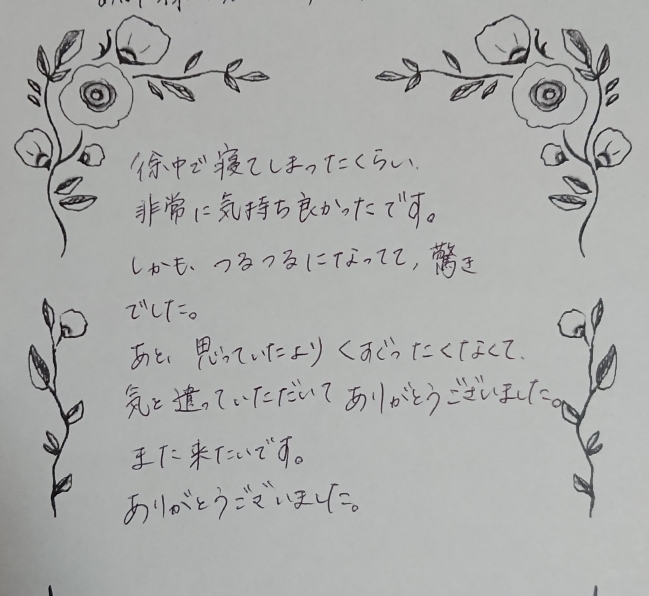 徐中で寝てしまったくらい、
非常に気持ち良かったです。
しかも、つるつるになってて、驚き
でした。
あと、思っていたよりくすぐったくなくて、
気と遣っていただいてありがとうございました。
また来たいです。
ありがとうございました。